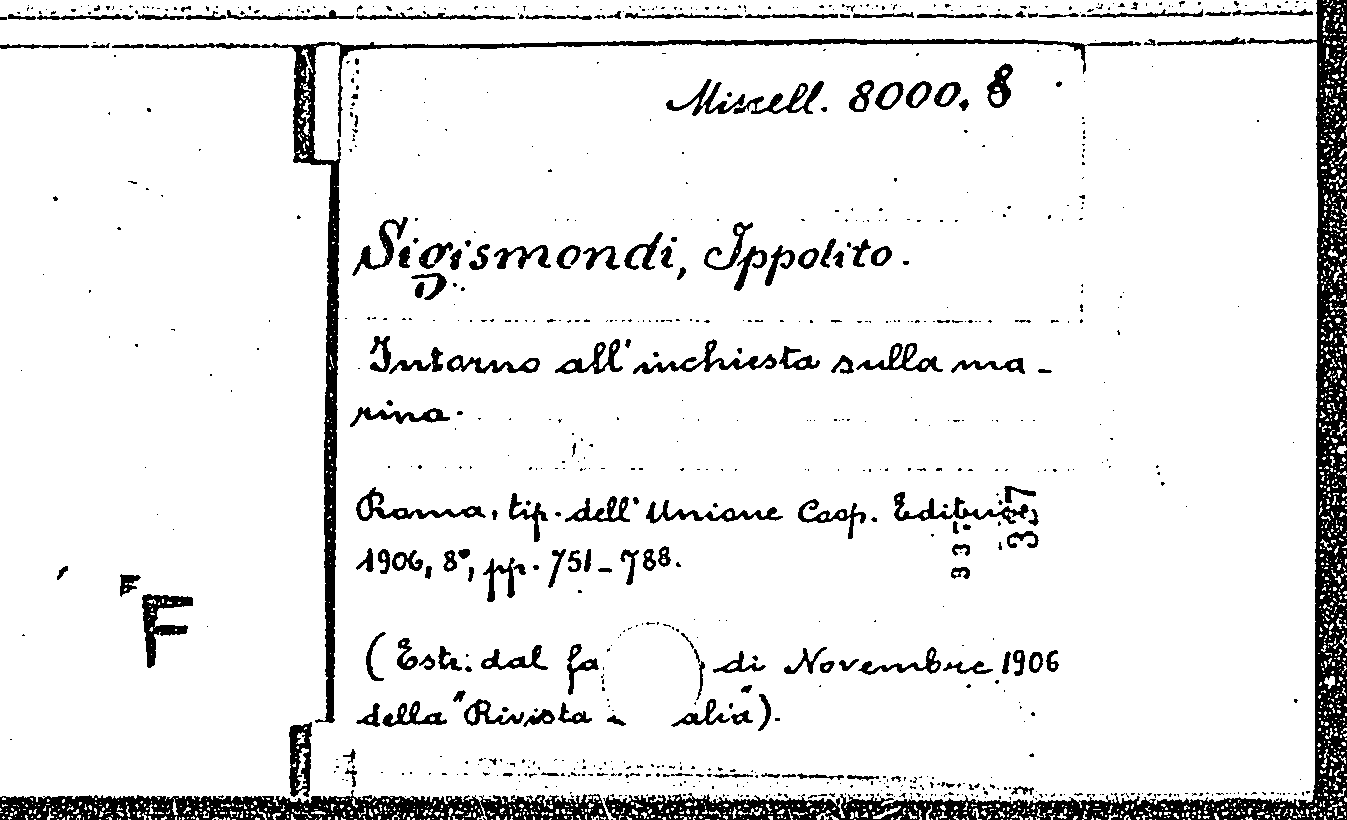 Miscell. 8000. 8
Sigismondi, Ippolito.
D
Intorno all'inchiesta sulla ma-
rina.
Roma, tip. dell'Unione Coop. Editrice
1906, 8°, pp. 751-788.
337
337
F
F
(Estr. dal di Novembre 1906
della "Rivista